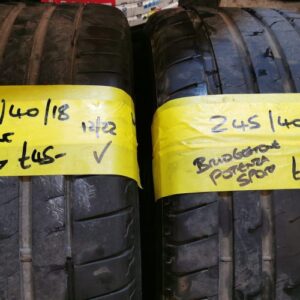 /40/18
12/22
£45-
✓
245/40
BRIDGESTONE
POTENZA
SPORT